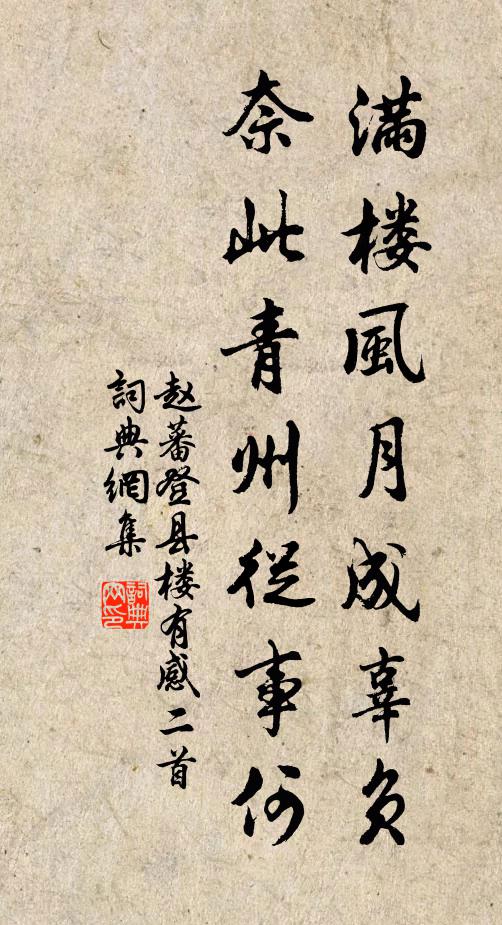 滿楼風月成辜负
奈此青州從事何
赵蕃登县楼有感二首
詞典網集
詞典网印